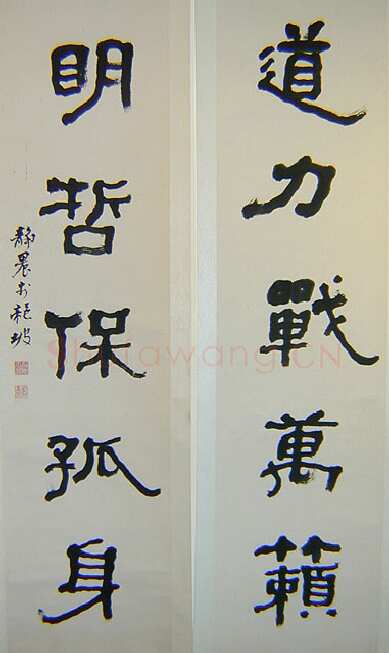 道力戰萬籟
明哲保孤身
靜農於龍坡
Shufawang.CN